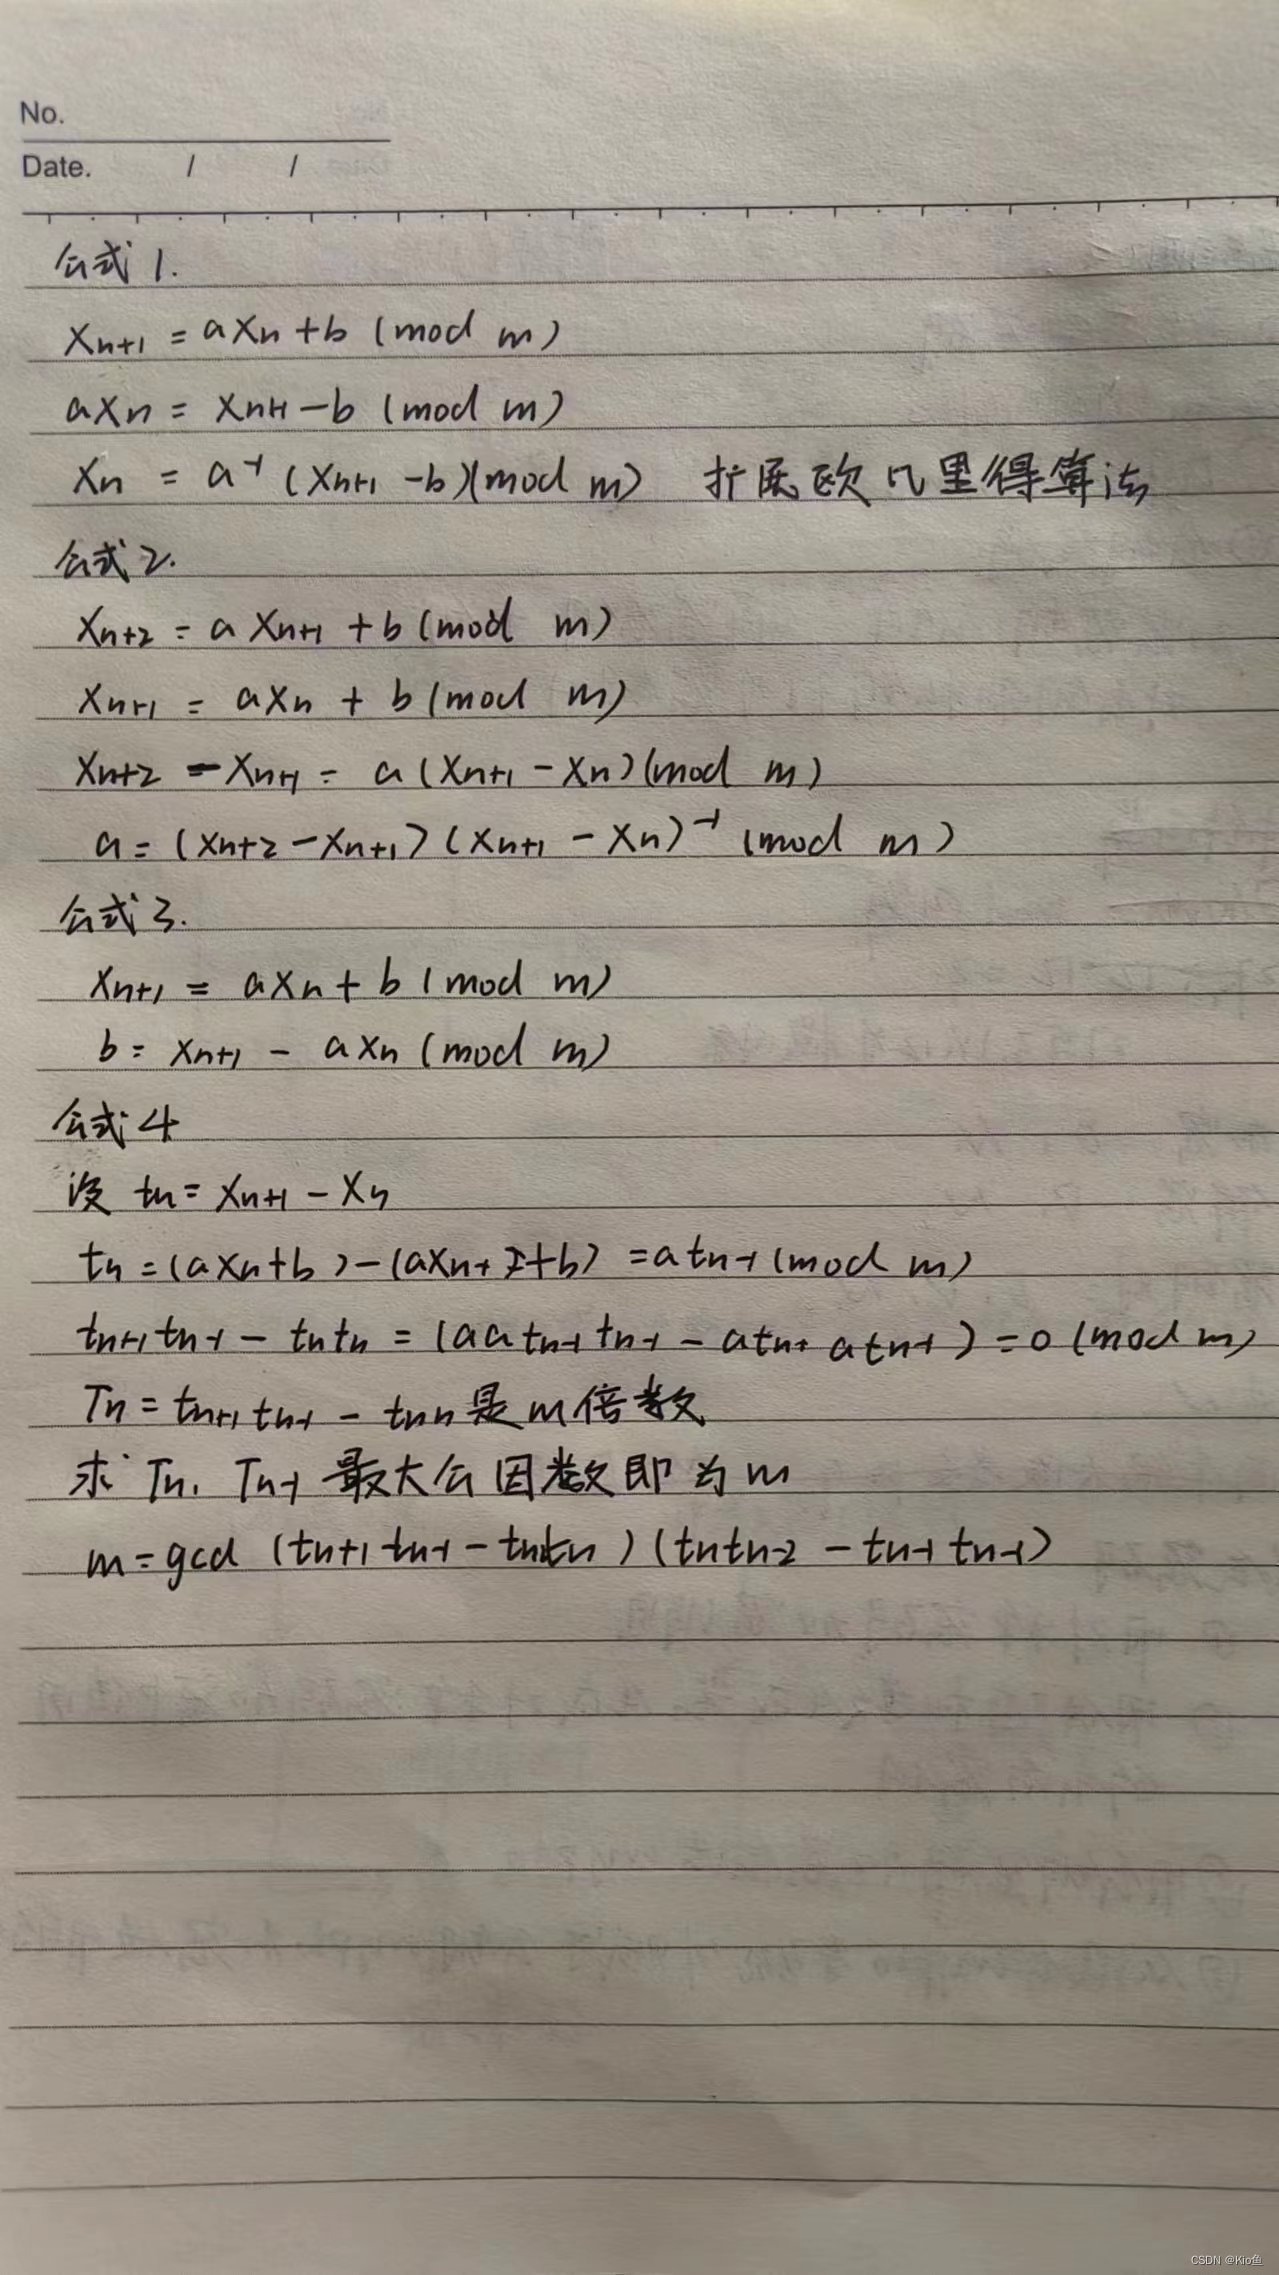 No.
Date. / /
公式1.
Xn+1 = aXn + b (mod m)
aXn = Xn+1 - b (mod m)
Xn = a⁻¹ (Xn+1 - b)(mod m) 扩展欧几里得算法
公式2.
Xn+2 = a Xn+1 + b (mod m)
Xn+1 = aXn + b (mod m)
Xn+2 - Xn+1 = a (Xn+1 - Xn) (mod m)
a = (Xn+2 - Xn+1) (Xn+1 - Xn)⁻¹ (mod m)
公式3.
Xn+1 = aXn + b (mod m)
b = Xn+1 - aXn (mod m)
公式4
设 tn = Xn+1 - Xn
tn = (aXn + b) - (aXn + I + b) = atn-1 (mod m)
tn+1 tn-1 - tn tn = (aa tn-1 tn-1 - atn+ atn-1) = 0 (mod m)
Tn = tn+1 tn-1 - tnn是m倍数
求 Tn, Tn-1 最大公因数即为m
m = gcd (tn+1 tn-1 - tn tn) (tn tn-2 - tn-1 tn-1)
CSDN @Kio鱼